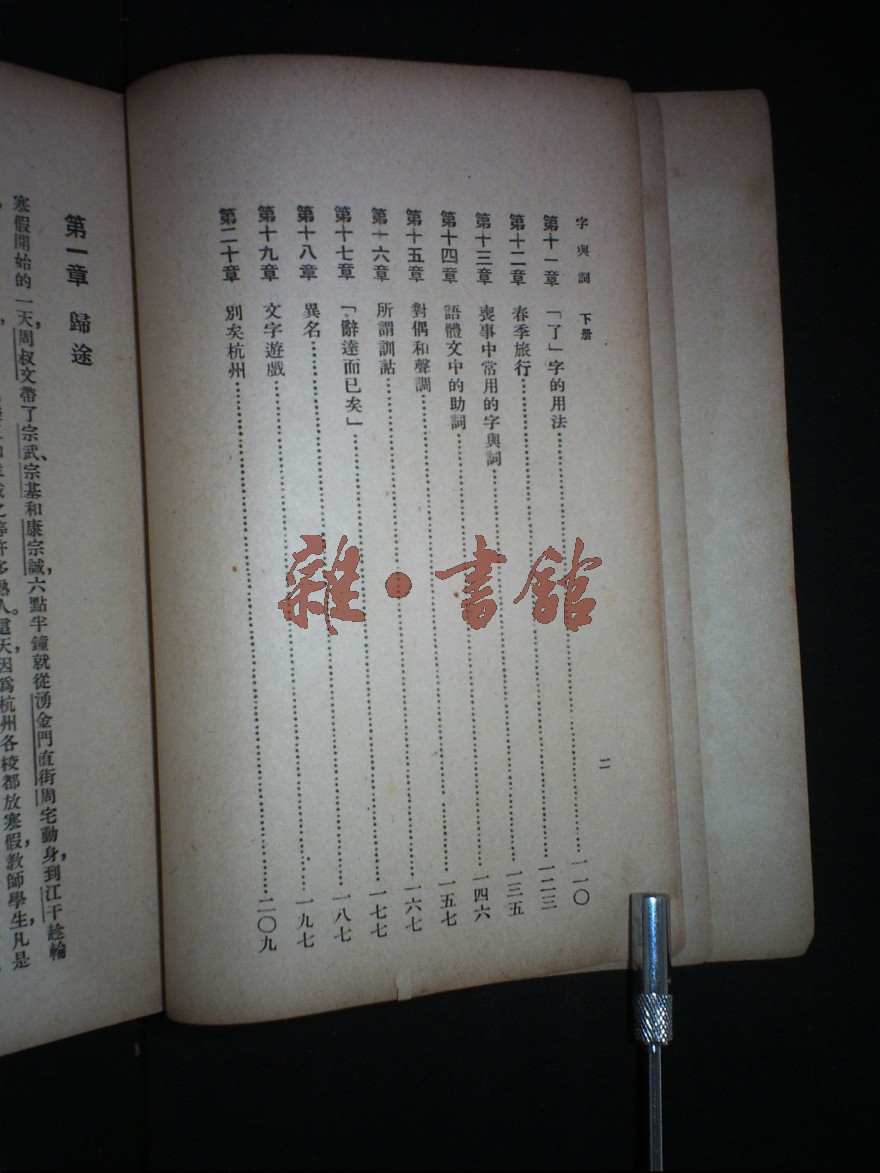 字與詞 下册
第十一章 「了」字的用法……一一〇
第十二章 春季旅行……一二三
第十三章 喪事中常用的字與詞……一三五
第十四章 語體文中的助詞……一四六
第十五章 對偶和聲調……一五七
第十六章 所謂訓詁……一六七
第十七章 「辭達而已矣」……一七七
第十八章 異名……一八七
第十九章 文字遊戲……一九七
第二十章 別矣杭州……二〇九
二
雜·書館
第一章 歸途
寒假開始的一天,周叔文帶了宗武、宗基和康宗誠,六點半鐘就從湧金門直街周宅動身,到江干趁輪
等許多熟人。這天,因爲杭州各校都放寒假,教師學生,凡是